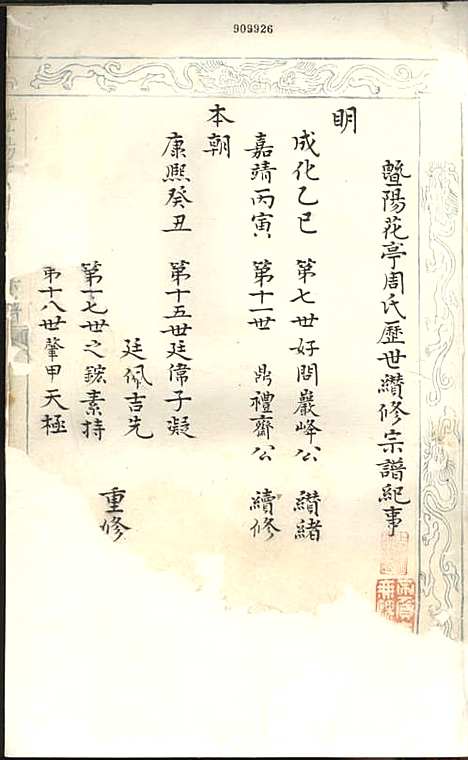 909926
暨陽花亭周氏歷世纘修宗譜紀事
明
成化乙巳 第七世好問嚴峰公 纘緒
嘉靖丙寅 第十一世 鼎禮齋公 續修
本朝
康熙癸丑 第十五世廷偉子凝
廷佩吉先
第十七世之鋐素持
第十八世肇甲天極
重修